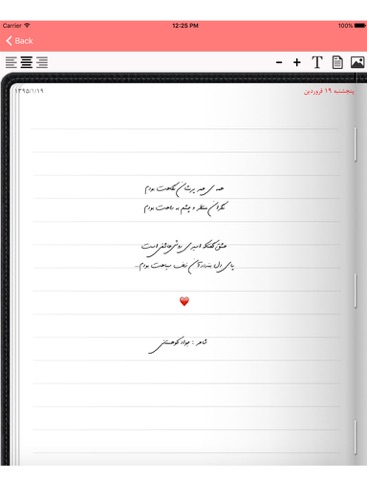 Carrier 12:25 PM 100%
Back
- + T
پنجشنبه ۱۹ فروردین ۱۳۹۵/۱/۱۹
همه ی عمر پریشان نگاهت بودم
نگران منتظر و چشم به راهت بودم
عشق گفتند اسیری روش عاشقی است
پای دل بسته آن زلف سیاهت بودم...
شاعر : جواد کوهستانی